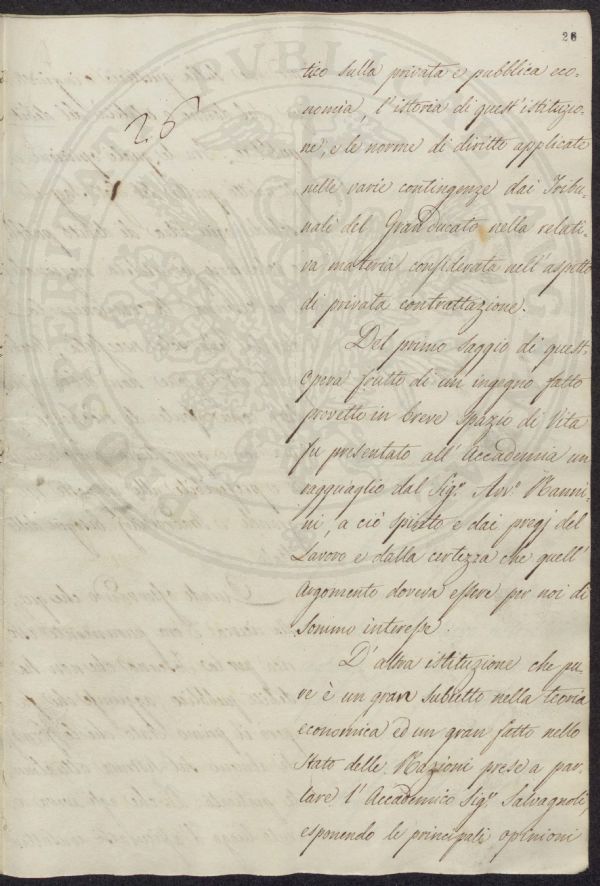 26
26
tico sulla privata e pubblica eco-
nomia, l'istoria di quest'istituzio-
ne, e le norme di diritto applicate
nelle varie contingenze dai Tribu-
nali del GranDucato nella relati-
va materia considerata nell'aspetto
di privata contrattazione.
Del primo saggio di quest-
opera frutto di un ingegno fatto
provetto in breve spazio di vita
fu presentato all'Accademia un
ragguaglio dal Sig.r Avv.o Nanni-
ni, a ciò spinto e dai pregj del
Lavoro e dalla certezza che quell'
Argomento doveva essere per noi di
sommo interesse.
D'altra istituzione che pu-
re è un grave subietto nella teoria
economica ed un gran fatto nello
stato delle Nazioni prese a par-
lare l'Accademico Sig.r Salvagnoli,
esponendo le principali opinioni